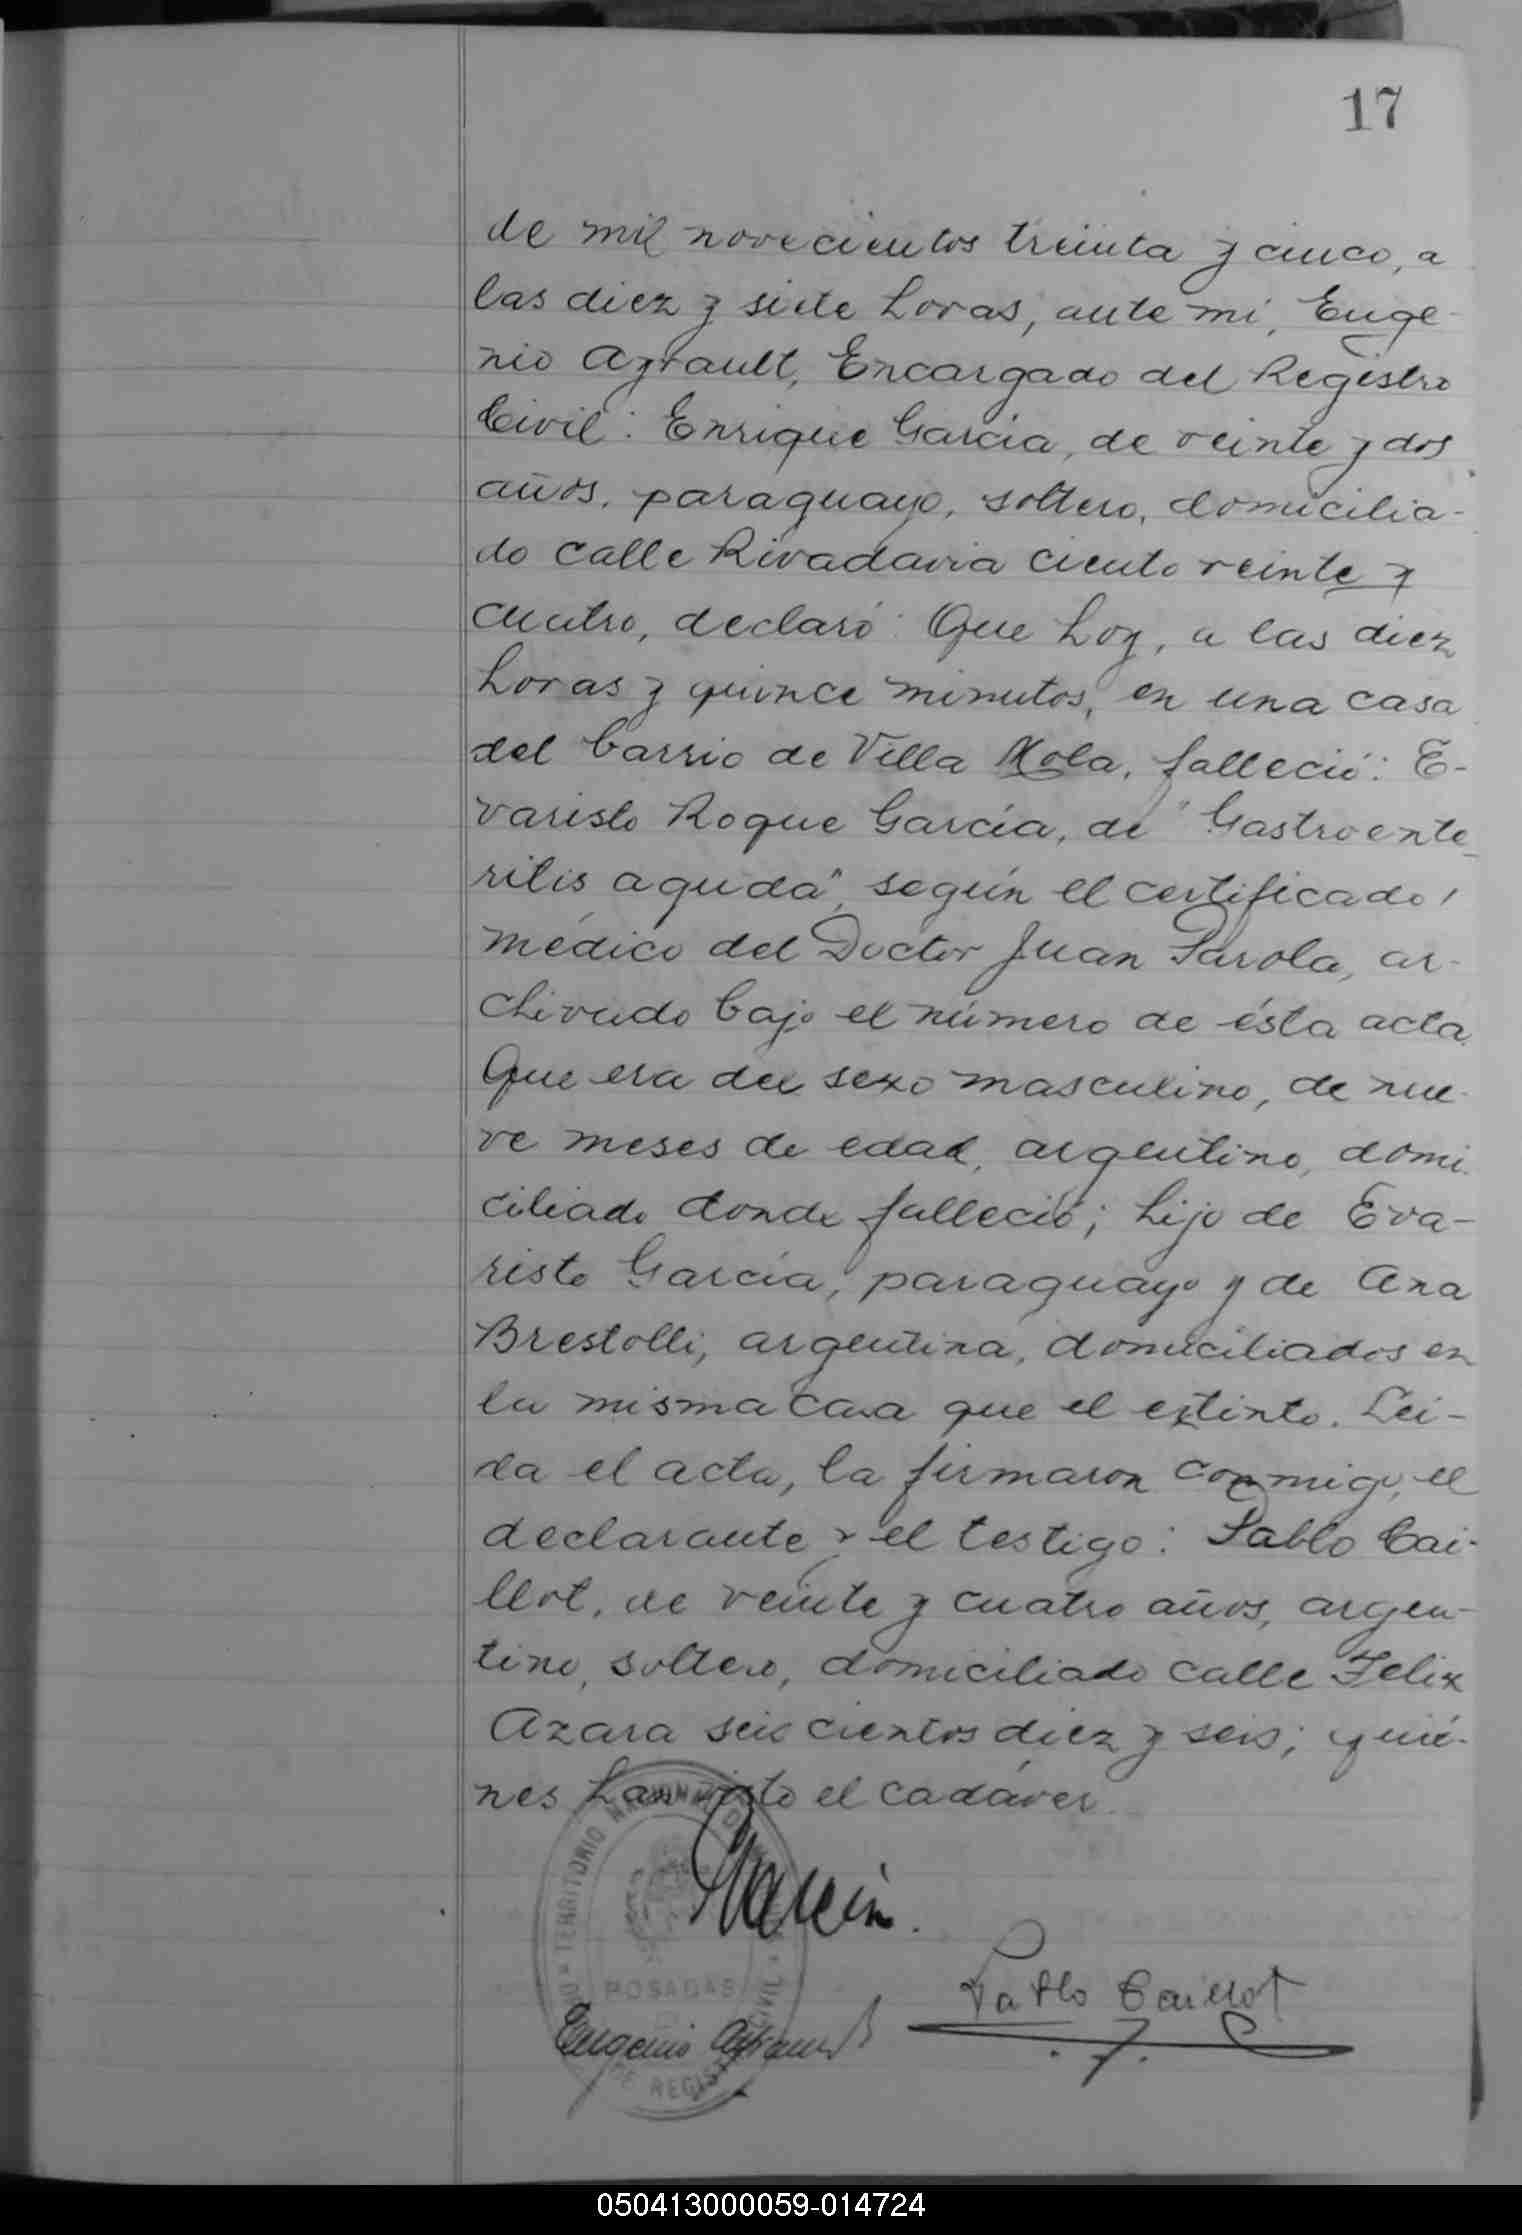 17
de mil novecientos treinta y cinco, a
las diez y siete horas, ante mi, Euge-
nio Ayrault, Encargado del Registro
Civil: Enrique García, de veinte y dos
años, paraguayo, soltero, domicilia-
do calle Rivadavia ciento veinte y
cuatro, declaró: Que hoy, a las diez
horas y quince minutos, en una casa
del barrio de Villa Mola, falleció: E-
varisto Roque García, de "Gastroente-
ritis aguda", según el certificado
médico del Doctor Juan Parola, ar-
chivado bajo el número de ésta acta.
Que era del sexo masculino, de nue-
ve meses de edad, argentino, domi-
ciliado donde falleció; hijo de Eva-
risto García, paraguayo y de Ana
Brestolli, argentina, domiciliados en
la misma casa que el extinto. Lei-
da el acta, la firmaron conmigo, el
declarante y el testigo: Pablo Cai-
llot, de veinte y cuatro años, argen-
tino, soltero, domiciliado calle Felix
Azara seis cientos diez y seis; quié-
nes han visto el cadáver.
TERRITORIO NACIONAL
POSADAS
DE REGISTRO CIVIL
García.
Pablo Caillot
Eugenio Ayrault
050413000059-014724